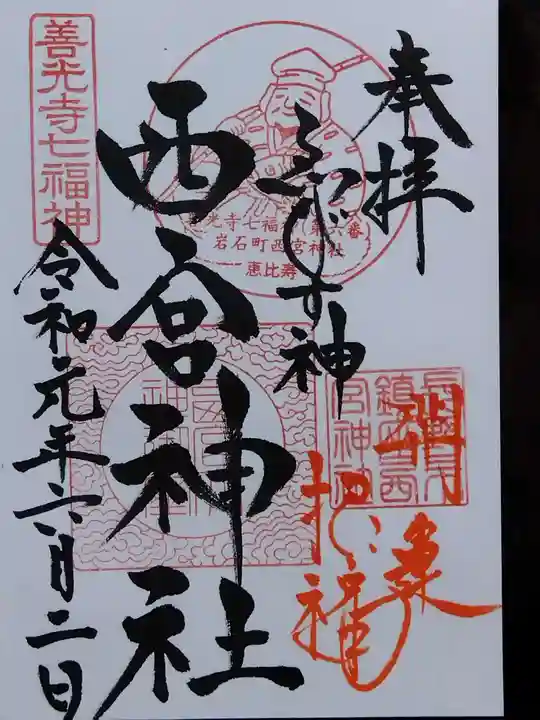 奉拝
ゑびす神
西宮神社
令和元年六月二日
善光寺七福神
善光寺七福神第六番
岩石町西宮神社
恵比寿
開業
招福